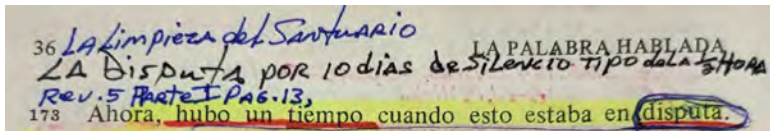 36 LA Limpieza del Santuario
LA PALABRA HABLADA
LA DisPutA POR 10 dias de SiLencio TIPO de LA ½ HORA
Rev. 5 PARte I PAG. 13,
173 Ahora, hubo un tiempo cuando esto estaba en disputa.